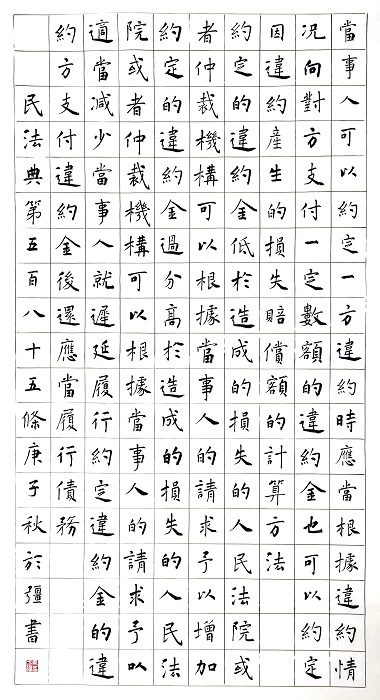 當事人可以約定一方違約時應當根據違約情
況向對方支付一定數額的違約金也可以約定
因違約產生的損失賠償額的計算方法
約定的違約金低於造成的損失的人民法院或
者仲裁機構可以根據當事人的請求予以增加
約定的違約金過分高於造成的損失的人民法
院或者仲裁機構可以根據當事人的請求予以
適當減少當事人就遲延履行約定違約金的違
約方支付違約金後還應當履行債務
民法典第五百八十五條庚子秋於彊書